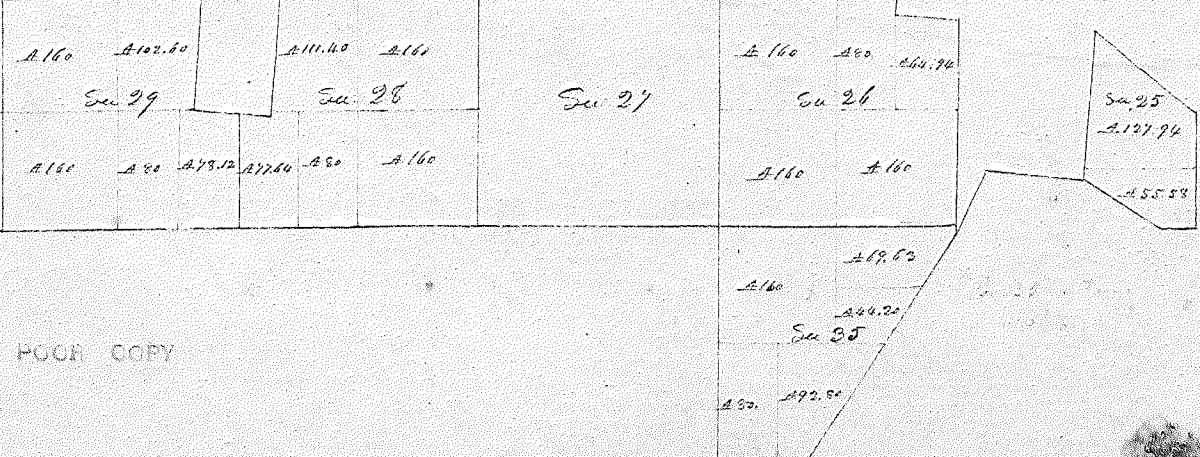 A 160 A 102.60 A 111.40 A 160 A 160 A 80 A 64.94
Sec 29 Sec 28 Sec 27 Sec 26 Sec 25
A 127.94
A 160 A 80 A 78.12 A 77.64 A 80 A 160 A 160 A 160
A 55.58
A 69.63
A 160
A 44.20
Sec 35
POOR COPY
A 80. A 92.80